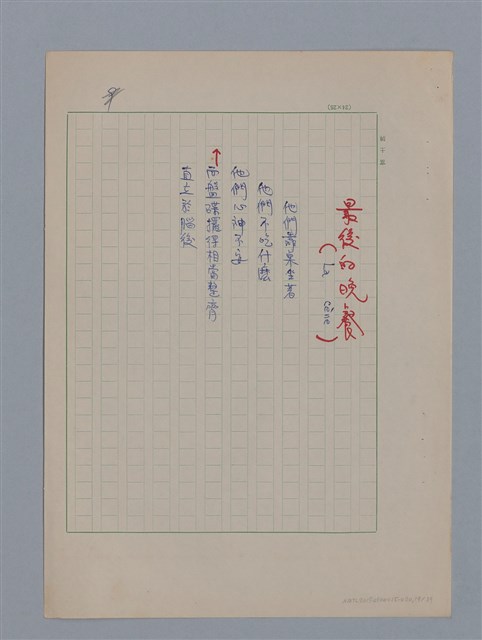 最後的晚餐
(La cène)
他們靠桌坐著
他們不吃什麼
他們心神不安
而盤碟擺得相當整齊
直立於腦後